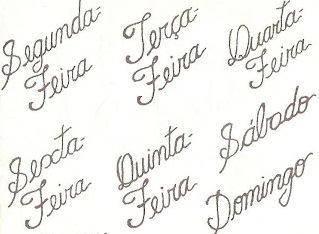 Segunda-
Feira
Terça-
Feira
Quarta-
Feira
Sexta-
Feira
Quinta-
Feira
Sábado
Domingo